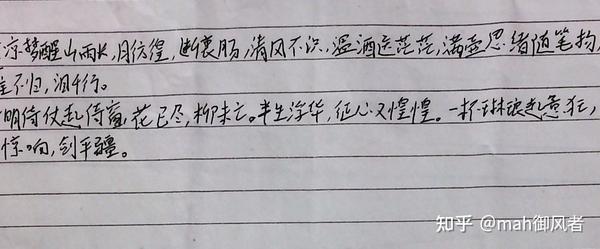 凉梦醒山雨长,月彷徨,断衷肠,清风不识,温酒还茫茫,满壶思绪随笔抛,
不归,泪千行。
明待仗剑待富,花已尽,柳未亡。半生浮华,征心又惶惶。一杯琳琅乱意狂,
惊响,剑平疆。
知乎 @mah御风者